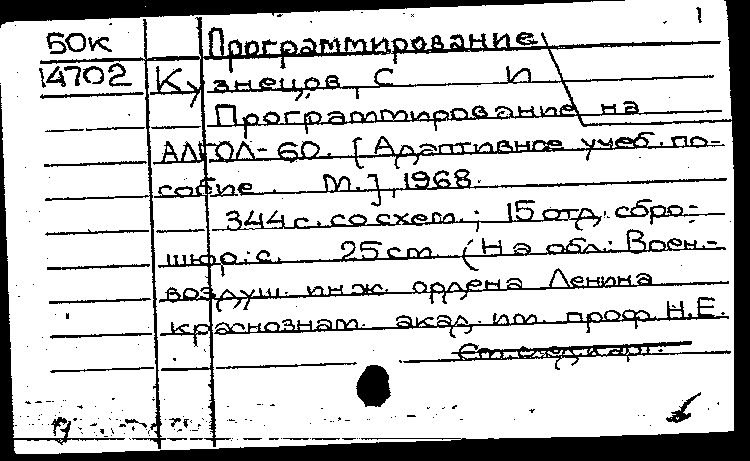 1
50к Программирование
14702 Кузнецов, С И
Программирование на
АЛГОЛ-60. [Адаптивное учеб. по-
собие. М.], 1968.
344 с. со схем.; 15 отд. сбро-
шюр. с. 25 см (На обл.: Воен.-
воздуш. инж. ордена Ленина
краснознам. акад. им. проф. Н.Е.
См. след. карт.